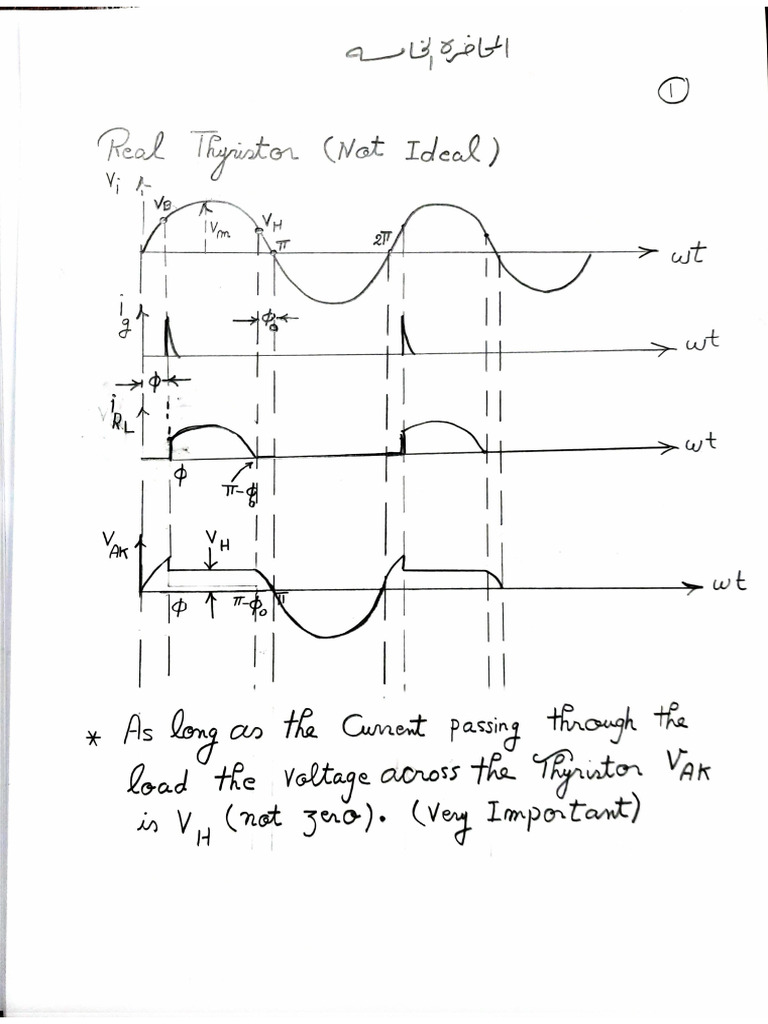 المحاضرة الخامسه
1
Real Thyristor (Not Ideal)
Vi
VB
Vm
VH
π
2π
ωt
ig
ϕ0
ωt
ϕ
iRL
ωt
ϕ
π-ϕ0
VAK
VH
ωt
ϕ
π-ϕ0
π
* As long as the Current passing through the
load the voltage across the Thyristor VAK
is VH (not zero). (Very Important)